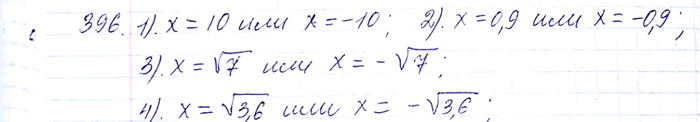 396. 1). x = 10 или x = -10; 2). x = 0,9 или x = -0,9;
3). x = √7 или x = -√7;
4). x = √3,6 или x = -√3,6;